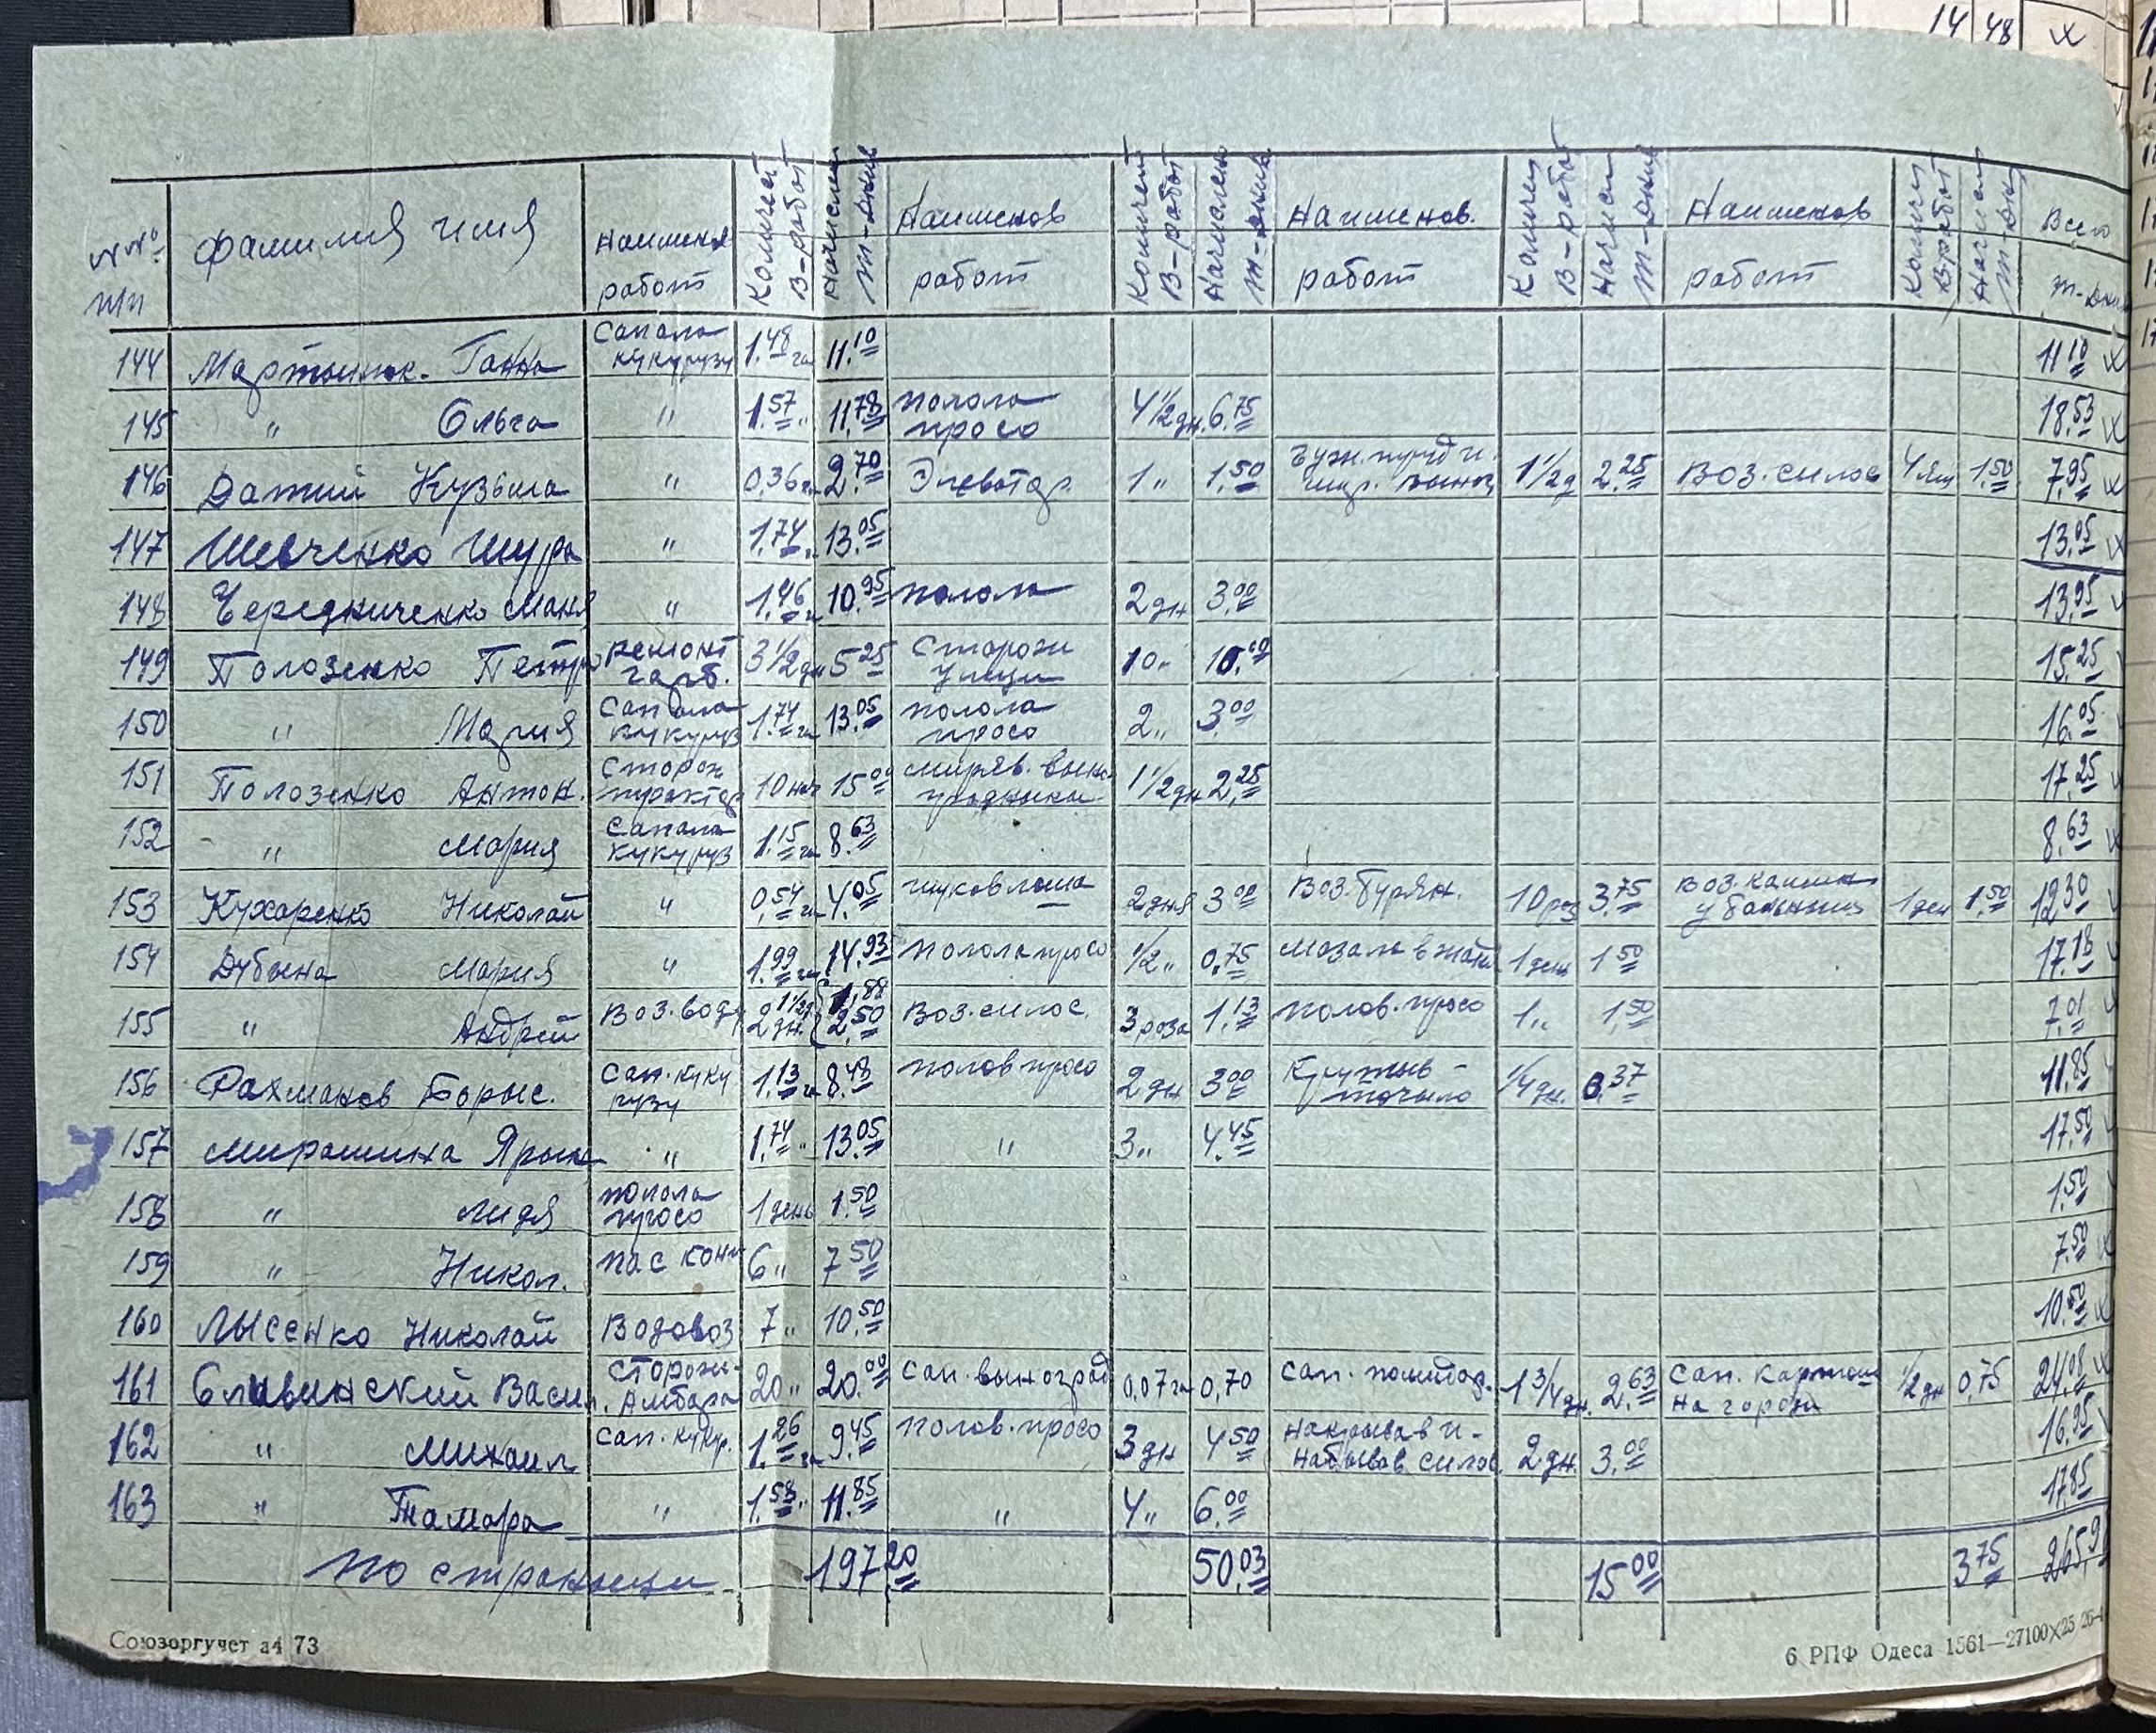 14 48 х
№№ п/п Фамилия имя Наименов работ Количест В-работ Начислен т-дней Наименов работ Количест В-работ Начислен т-дней Наименов. работ Количест В-работ Начислен т-дней Наименов работ Количест В-работ Начислен т-дней Всего т-дней
144 Мартынюк. Ганна Сапала кукурузу 1.48 га 11.10 11.10 х
145 " Ольга " 1.57 " 11.78 полола просо 4 1/2 дн. 6.75 18.53 х
146 Датий Кузьма " 0,36 га 2.70 1 " 1.50 1 1/2 д 2.25 Воз. силос 4 1.50 7.95 х
147 Шевченко Шура " 1.74 га 13.05 13.05 х
148 Чередниченко Маня " 1.46 га 10.95 полола 2 дн 3.00 13.95
149 Полозенко Петро ремонт гарб. 3 1/2 дн 5 25 Сторожи 10 " 10.00 15.25
150 " Мария Сапала кукуруз 1.74 га 13.05 полола просо 2 " 3.00 16.05
151 Полозенко Антон. Сторож трактор 10 ноч 15 00 1 1/2 дн 2.25 17.25
152 " Мария Сапала кукуруз 1.15 га 8.63 8.63 х
153 Кухаренко Николай " 0,54 га 4.05 2 дня 3 00 Воз. бурян. 10 раз 3.75 Воз. 1 ден 1.50 12.30
154 Дубына Мария " 1.99 га 14.93 Полола просо 1/2 " 0,75 Мазала 1 день 1 50 17.18
155 " Андрей Воз. воду 2 дн. 1 1/2 д 1,88 2,50 Воз. силос. 3 роза 1.13 полов. просо 1 " 1.50 7.01
156 Рахманов Борыс. Сап. кукурузу 1.13 га 8.48 полов просо 2 дн 3 00 Крутыв - точыло 1/4 дн. 0.37 11.85
157 Мирошина Ярын " 1.74 " 13.05 " 3 " 4.45 17.50
158 " Лидя полола просо 1 день 1.50 1.50
159 " Никол. пас кони 6 " 7 50 7.50 х
160 Лысенко Николай Водовоз 7 " 10.50 10.50 х
161 Славинский Васил. Сторож. Амбара 20 " 20.00 Сап. выноград 0,07 га 0,70 Сап. помидор. 1 3/4 дн. 2.63 Сап. картош на городи 1/2 дн 0,75 24,08 х
162 " Михаил Сап. кукур. 1.26 га 9.45 полов. просо 3 дн 4 50 Накрывав и - набывав силос. 2 дн. 3.00 16.95
163 " Тамара " 1.58 " 11.85 " 4 " 6.00 17.85
По страныци 197 20 50.03 15 00 3 75
Союзоргучет а4 73
6 РПФ Одеса 1561—27100х25